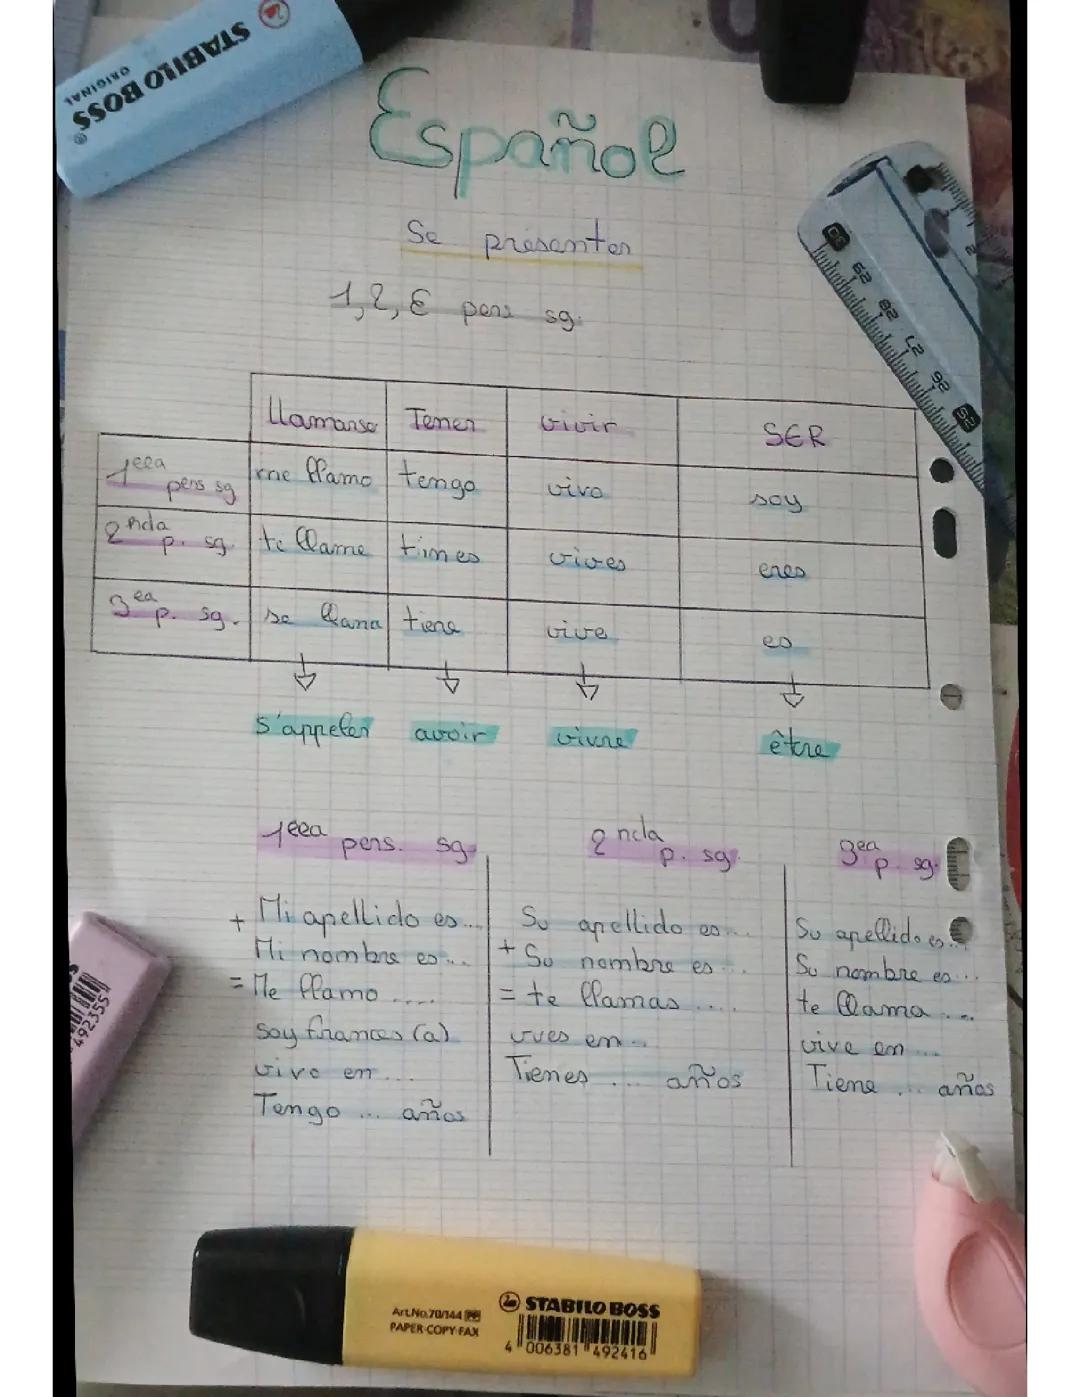 STABILO BOSS
ORIGINAL
Español
Se présenter
1, 2, 3 pers sg.
llamarse Tener vivir SER
1era pers sg me llamo tengo vivo soy
2nda p. sg. te llame times vives eres
3ea p. sg. se llana tiene vive es
s'appeler avoir vivre être
1era pers. sg. 2nda p. sg. 3ea p. sg.
+ Mi apellido es... Su apellido es... Su apellido es...
Mi nombre es... + Su nombre es... Su nombre es...
= Me llamo ..... = te llamas .... te llama ...
Soy frances (a) vves en... vive en ...
vivo en ... Tienes ... años Tiene ... años
Tengo ... años
492355
30 29 28 27 26 25
Art.No.70/144
PAPER-COPY-FAX
STABILO BOSS
4 006381 492416